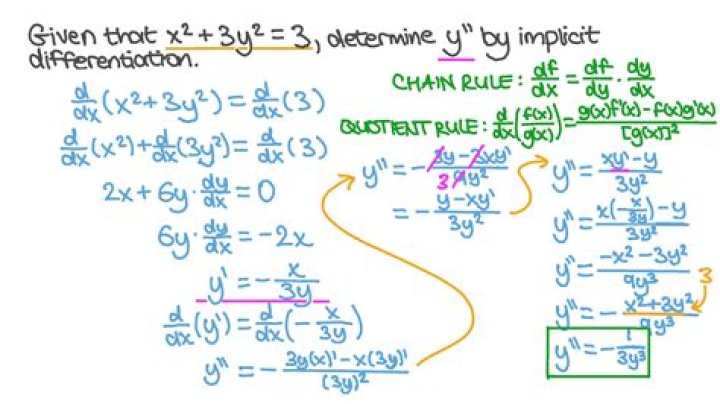 Given that x² + 3y² = 3, determine y'' by implicit
differentiation.
CHAIN RULE: df/dx = df/dy · dy/dx
QUOTIENT RULE: d/dx (f(x)/g(x)) = (g(x)f'(x) - f(x)g'(x))/[g(x)]²
d/dx (x² + 3y²) = d/dx (3)
d/dx (x²) + d/dx (3y²) = d/dx (3)
2x + 6y · dy/dx = 0
6y · dy/dx = -2x
y' = - x/3y
d/dx (y') = d/dx (- x/3y)
y'' = - (3y(x)' - x(3y)')/(3y)²
y'' = - (3y - 3xy')/9y²
3
= - (y - xy')/3y²
y'' = (xy' - y)/3y²
y'' = (x(- x/3y) - y)/3y²
y'' = (-x² - 3y²)/9y³
3
y'' = - (x² + 3y²)/9y³
y'' = - 1/3y³